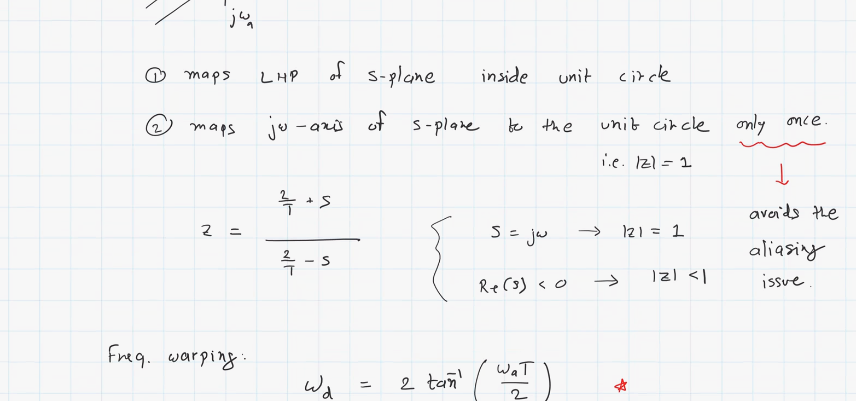 jωₐ
① maps LHP of s-plane inside unit circle
② maps jω-axis of s-plane to the unit circle only once.
i.e. |z| = 1
↓
avoids the
aliasing
issue.
z = (2/T + s) / (2/T - s)
{ s = jω → |z| = 1
Re(s) < 0 → |z| < 1
Freq. warping:
ω_d = 2 tan⁻¹ (ωₐT / 2) ☆